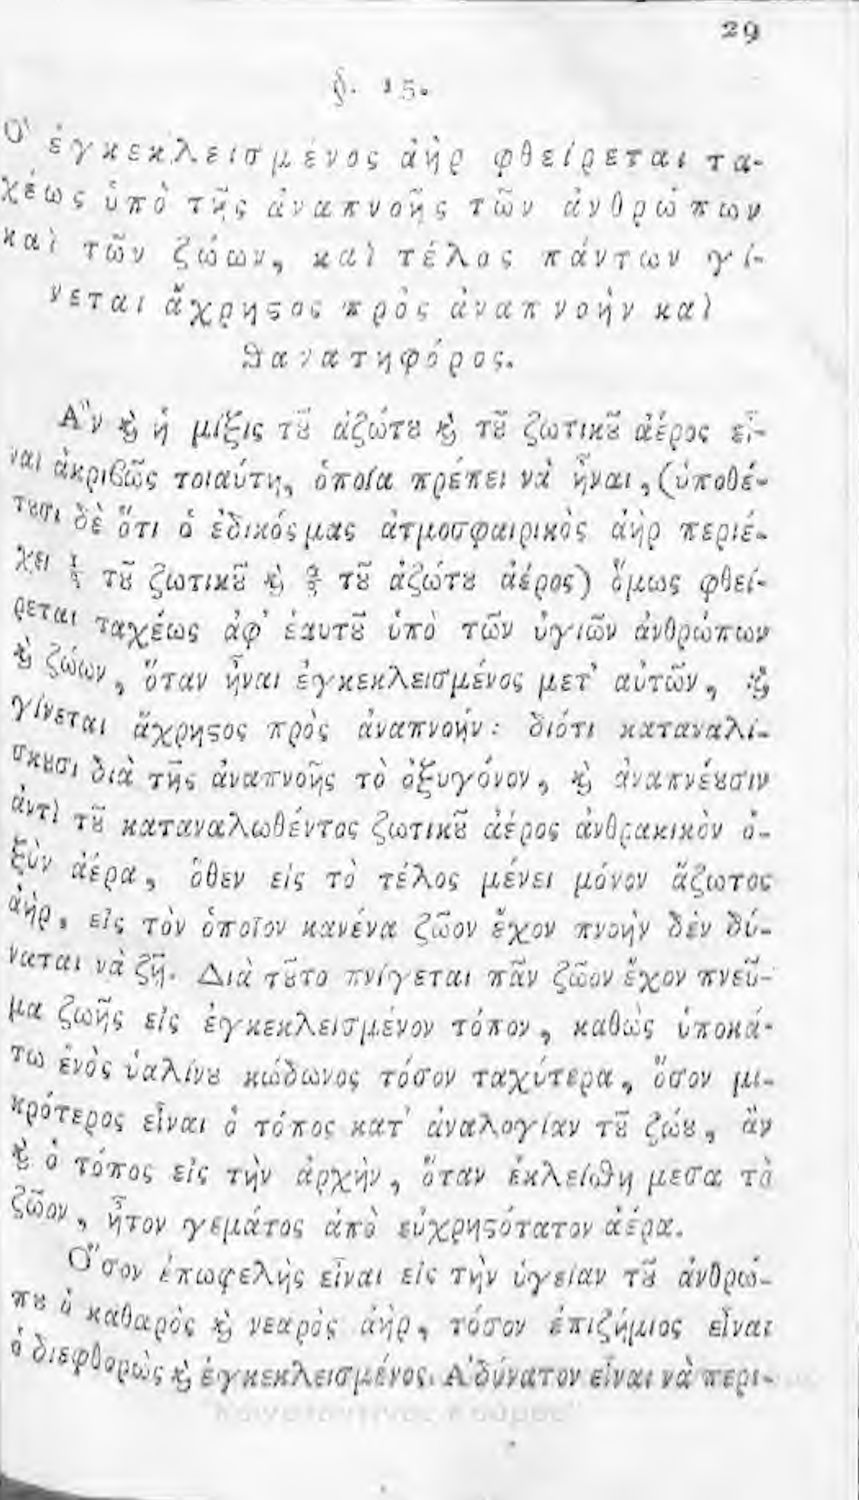 29
§. 15.
Ὁ ἐγκεκλεισμένος ἀὴρ φθείρεται τα-
χέως ὑπὸ τῆς ἀναπνοῆς τῶν ἀνθρώπων
καὶ τῶν ζώων, καὶ τέλος πάντων γί-
νεται ἄχρηϛος πρὸς ἀναπνοὴν καὶ
θανατηφόρος.
Ἂν ϗ ἡ μίξις τȣ͂ ἀζώτȣ ϗ τȣ͂ ζωτικȣ͂ ἀέρος εἶ-
ναι ἀκριβῶς τοιαύτη, ὁποία πρέπει νὰ ἦναι, (ὑποθέ-
τȣσι δὲ ὅτι ὁ ἐδικός μας ἀτμοσφαιρικὸς ἀὴρ περιέ-
χει τȣ͂ ζωτικȣ͂ ϗ τȣ͂ ἀζώτȣ ἀέρος) ὅμως φθεί-
ρεται ταχέως ἀφ' ἑαυτȣ͂ ὑπὸ τῶν ὑγιῶν ἀνθρώπων
ϗ ζώων, ὅταν ἦναι ἐγκεκλεισμένος μετ' αὐτῶν, ϗ
γίνεται ἄχρηϛος πρὸς ἀναπνοήν: διότι καταναλί-
σκȣσι διὰ τῆς ἀναπνοῆς τὸ ὀξυγόνον, ϗ ἀναπνέȣσιν
ἀντὶ τȣ͂ καταναλωθέντος ζωτικȣ͂ ἀέρος ἀνθρακικὸν ὀ-
ξὺν ἀέρα, ὅθεν εἰς τὸ τέλος μένει μόνον ἄζωτος
ἀὴρ, εἰς τὸν ὁποῖον κανένα ζῶον ἔχον πνοὴν δὲν δύ-
ναται νὰ ζῇ. Διὰ τȣ͂το πνίγεται πᾶν ζῶον ἔχον πνεῦ-
μα ζωῆς εἰς ἐγκεκλεισμένον τόπον, καθὼς ὑποκά-
τω ἑνὸς ὑαλίνȣ κώδωνος τόσον ταχύτερα, ὅσον μι-
κρότερος εἶναι ὁ τόπος κατ' ἀναλογίαν τȣ͂ ζώȣ, ἂν
ϗ ὁ τόπος εἰς τὴν ἀρχὴν, ὅταν ἐκλείσθη μεσα τὸ
ζῶον, ἦτον γεμάτος ἀπὸ εὐχρηϛότατον ἀέρα.
Ὅσον ἐπωφελὴς εἶναι εἰς τὴν ὑγείαν τȣ͂ ἀνθρώ-
πȣ ὁ καθαρὸς ϗ νεαρὸς ἀὴρ, τόσον ἐπιζήμιος εἶναι
ὁ διεφθορὼς ϗ ἐγκεκλεισμένος. Ἀδύνατον εἶναι νὰ περι-